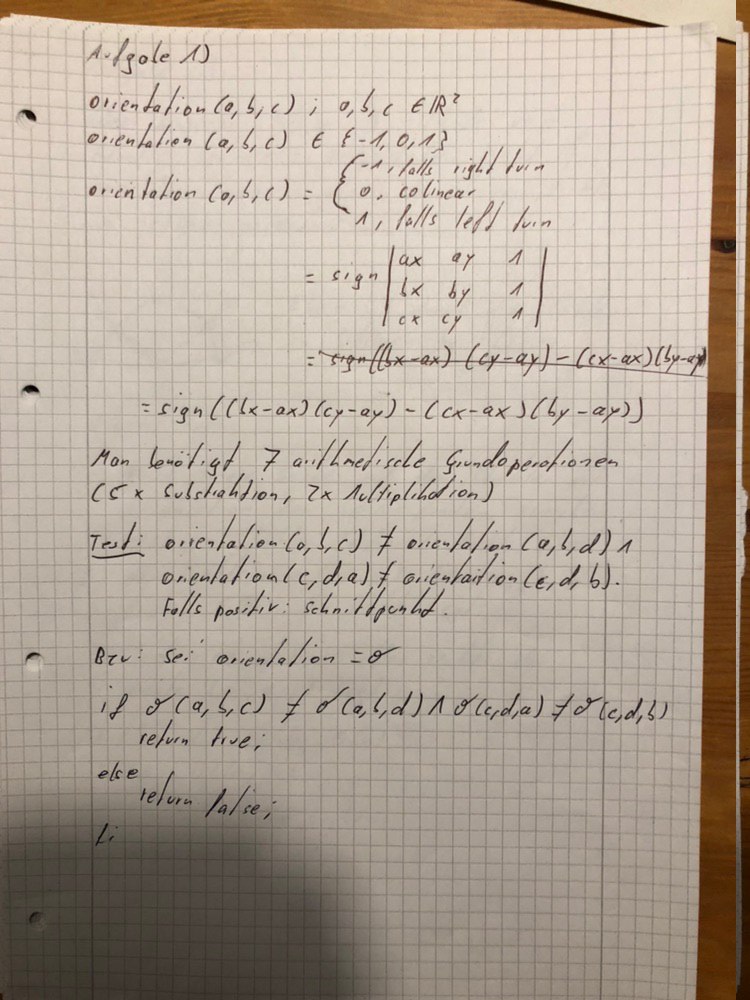 Aufgabe 1)
orientation (a, b, c) ; a, b, c ∈ ℝ²
orientation (a, b, c) ∈ {-1, 0, 1}
orientation (a, b, c) = { -1, falls right turn
0, colinear
1, falls left turn
= sign | ax ay 1 |
| bx by 1 |
| cx cy 1 |
= sign((bx-ax) (cy-ay) - (cx-ax)(by-ay)
= sign((bx-ax)(cy-ay) - (cx-ax)(by-ay))
Man benötigt 7 arithmetische Grundoperationen
(5 x Subtraktion, 2x Multiplikation)
Test: orientation (a, b, c) ≠ orientation (a, b, d) ∧
orientation (c, d, a) ≠ orientaition (c, d, b).
Falls positiv: schnittpunkt.
Bzw: sei orientation = σ
if σ(a, b, c) ≠ σ(a, b, d) ∧ σ(c, d, a) ≠ σ(c, d, b)
return true;
else
return false;
fi